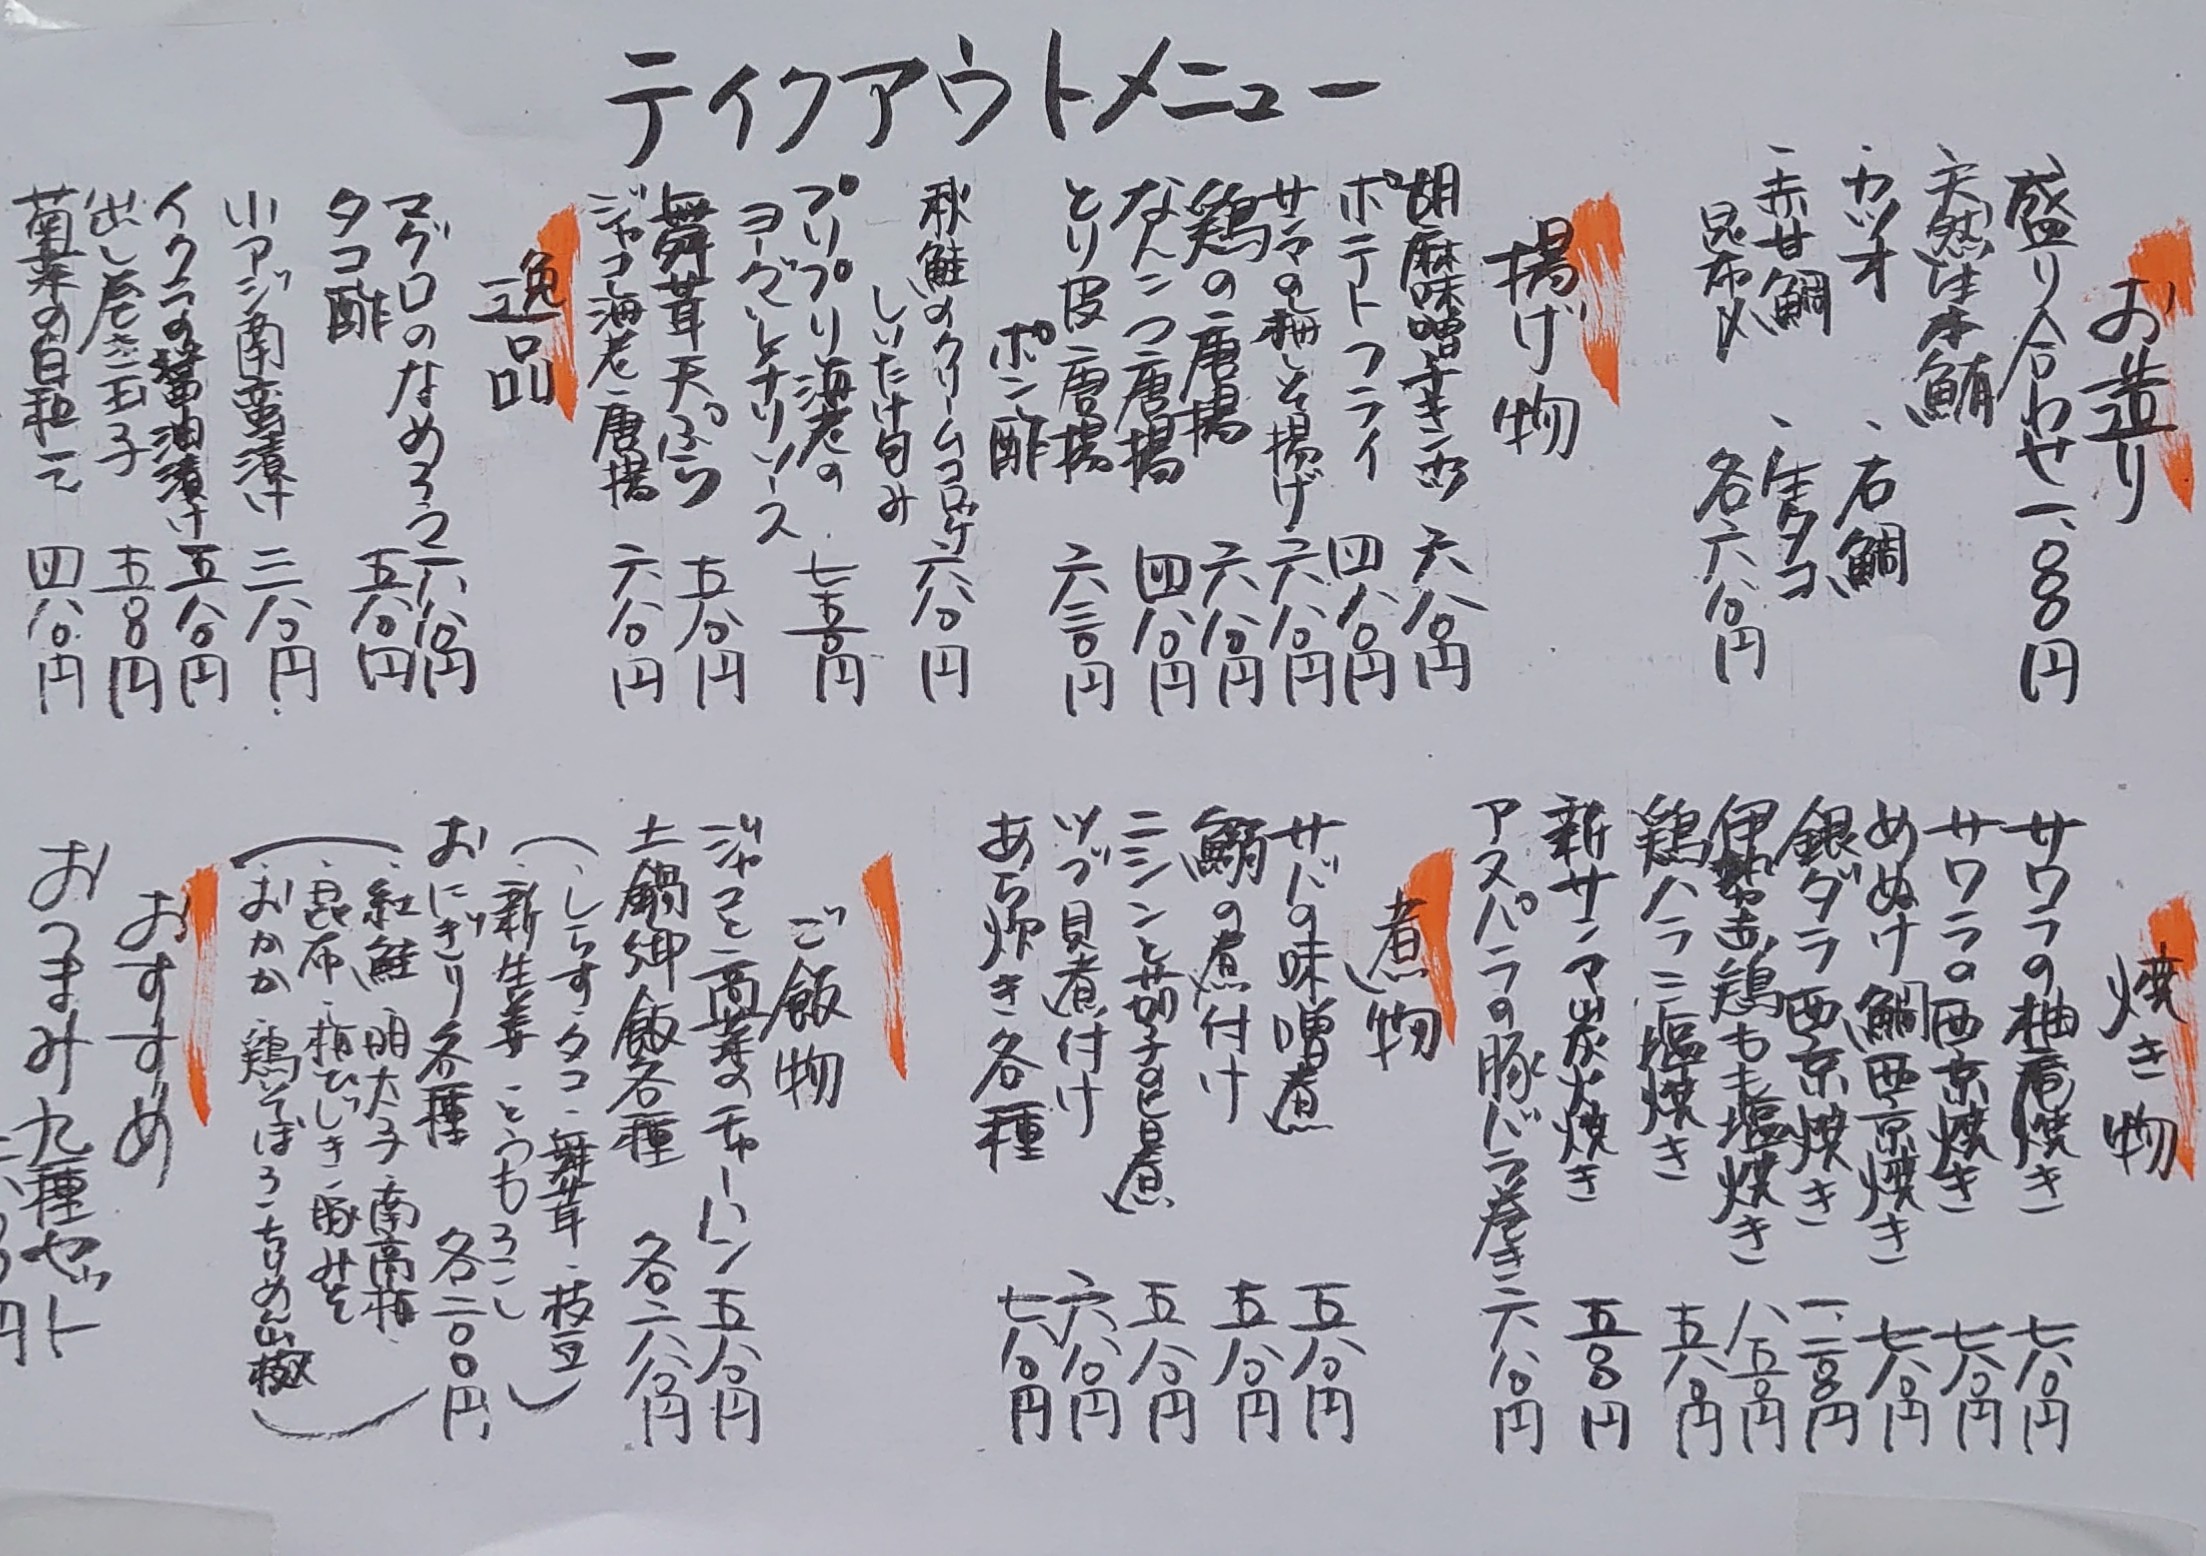 ティクアウトメニュー
お造り
盛り合わせ 一、〇八〇円
・天然生本鮪
・カツオ ・石鯛
・赤甘鯛 ・生タコ
昆布〆 各六八〇円
揚げ物
胡麻味噌チキンカツ 六八〇円
ポテトフライ 四八〇円
サンマの梅しそ揚げ 六八〇円
鶏の唐揚 六八〇円
なんこつ唐揚 四八〇円
とり皮唐揚 六三〇円
ポン酢
秋鮭のクリームコロッケ 六八〇円
しいたけ包み
プリプリ海老の 七五〇円
ヨーグルトチリソース
舞茸天ぷら 五八〇円
ジャコ海老唐揚 六八〇円
逸品
マグロのなめろう 六八〇円
タコ酢 五八〇円
小アジ南蛮漬け 三八〇円
イクラの醤油漬け 五八〇円
出し巻き玉子 五八〇円
菊菜の白和え 四八〇円
焼き物
サワラの柚庵焼き 七八〇円
サワラの西京焼き 七八〇円
めぬけ鯛西京焼き 七八〇円
銀ダラ西京焼き 一、二八〇円
伊勢赤鶏もも塩焼き 八五〇円
鶏ハラミ塩焼き 五八〇円
新サンマ炭火焼き 五八〇円
アスパラの豚バラ巻き 六八〇円
煮物
サバの味噌煮 五八〇円
鰯の煮付け 五八〇円
ニシンと茄子の煮 五八〇円
ツブ貝煮付け 六八〇円
あら炊き各種 七八〇円
ご飯物
ジャコと高菜のチャーハン 五八〇円
土鍋御飯各種 各二八〇円
(・しらす・タコ・舞茸・枝豆
・新生姜・とうもろこし)
おにぎり各種 各二〇〇円
(・紅鮭・明太子・南高梅
・昆布・梅ひじき・豚みそ
・おかか・鶏そぼろ・ちりめん山椒)
おすすめ
おつまみ九種セット